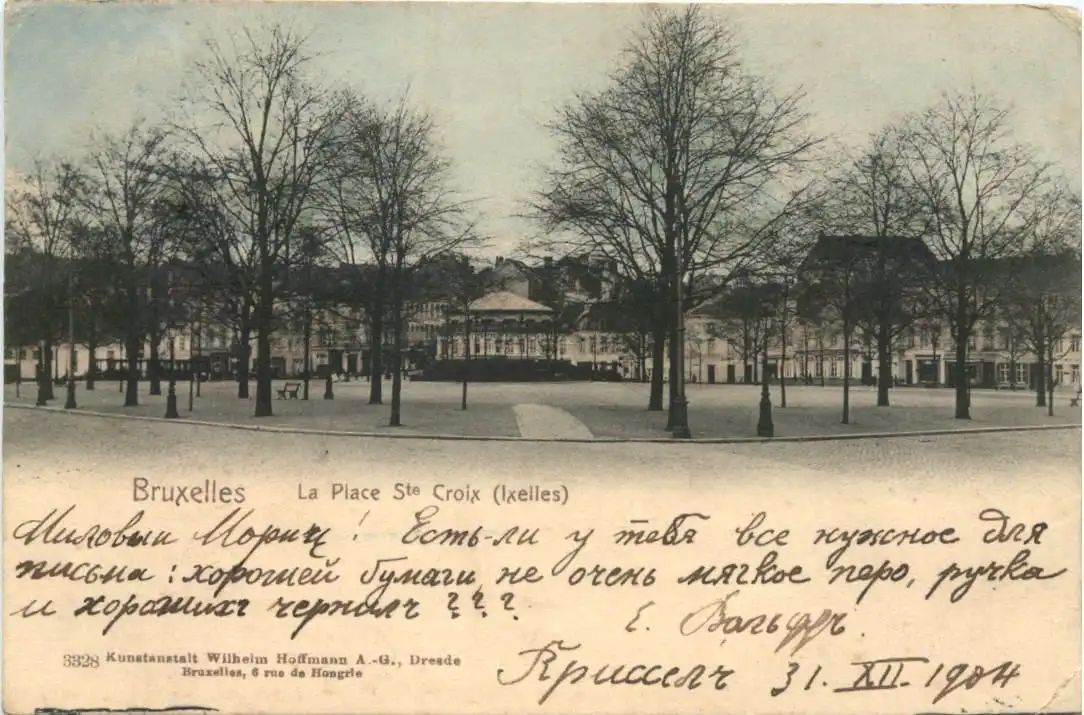 Bruxelles La Place Ste Croix (Ixelles)
Миловый Морицъ! Есть-ли у тебя все нужное для
письма: хорошей бумаги, не очень мягкое перо, ручка
и хорошихъ чернилъ ???
Е. Вольфъ.
3328 Kunstanstalt Wilhelm Hoffmann A.-G., Dresde
Bruxelles, 6 rue de Hongrie
Брюссель 31. XII. 1904